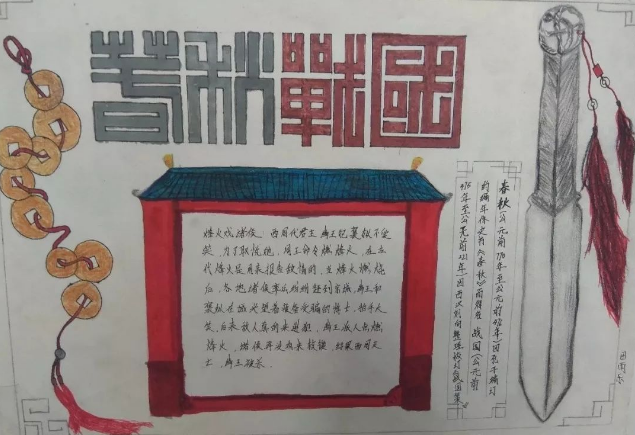 春秋戰國
烽火戏诸侯，西周代君王，幽王妃褒姒不爱
笑，为了取悦她，周王命令燃烽火，在古
代烽火是用来报告敌情的，在烽火燃烧
后，各地诸侯率从纷纷赶到京城，幽王和
褒姒在城头望着被受骗的将士，拍手大
笑，后来敌人真的来进犯，幽王派人点燃
烽火，诸侯再没有来救援，结果西周灭
亡，幽王被杀。
春秋（公元前770年至公元前476年）因孔子编订
的编年体史书《春秋》而得名 战国（公元前
475年至公元前221年）因西汉刘向整理校订战国策